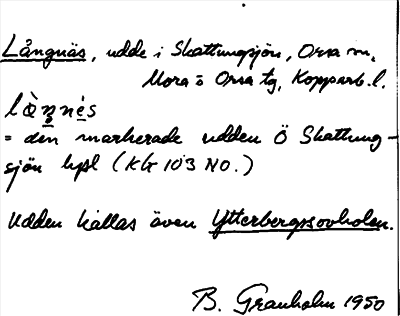 Långnäs, udde i Skattungsjön, Orsa sn,
Mora o Orsa tg, Kopparb. l.
= den markerade udden Ö Skattung-
sjön hpl (KG 103 NO.)
Udden kallas även Ytterbergsovholen.
B. Granholm 1950